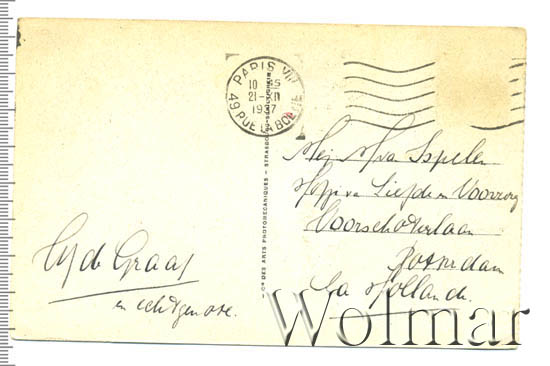 PARIS VIII
10 45
21-XII
1937
49 RUE LA BOETIE
Cie DES ARTS PHOTOMECANIQUES - STRASBOURG-SCHILTIGHEIM
Mej
v. Liefde en Voorzorg
Voorschoterlaan
Rotterdam
La Hollande.
de Graaf
en echtgenote.
Wolmar